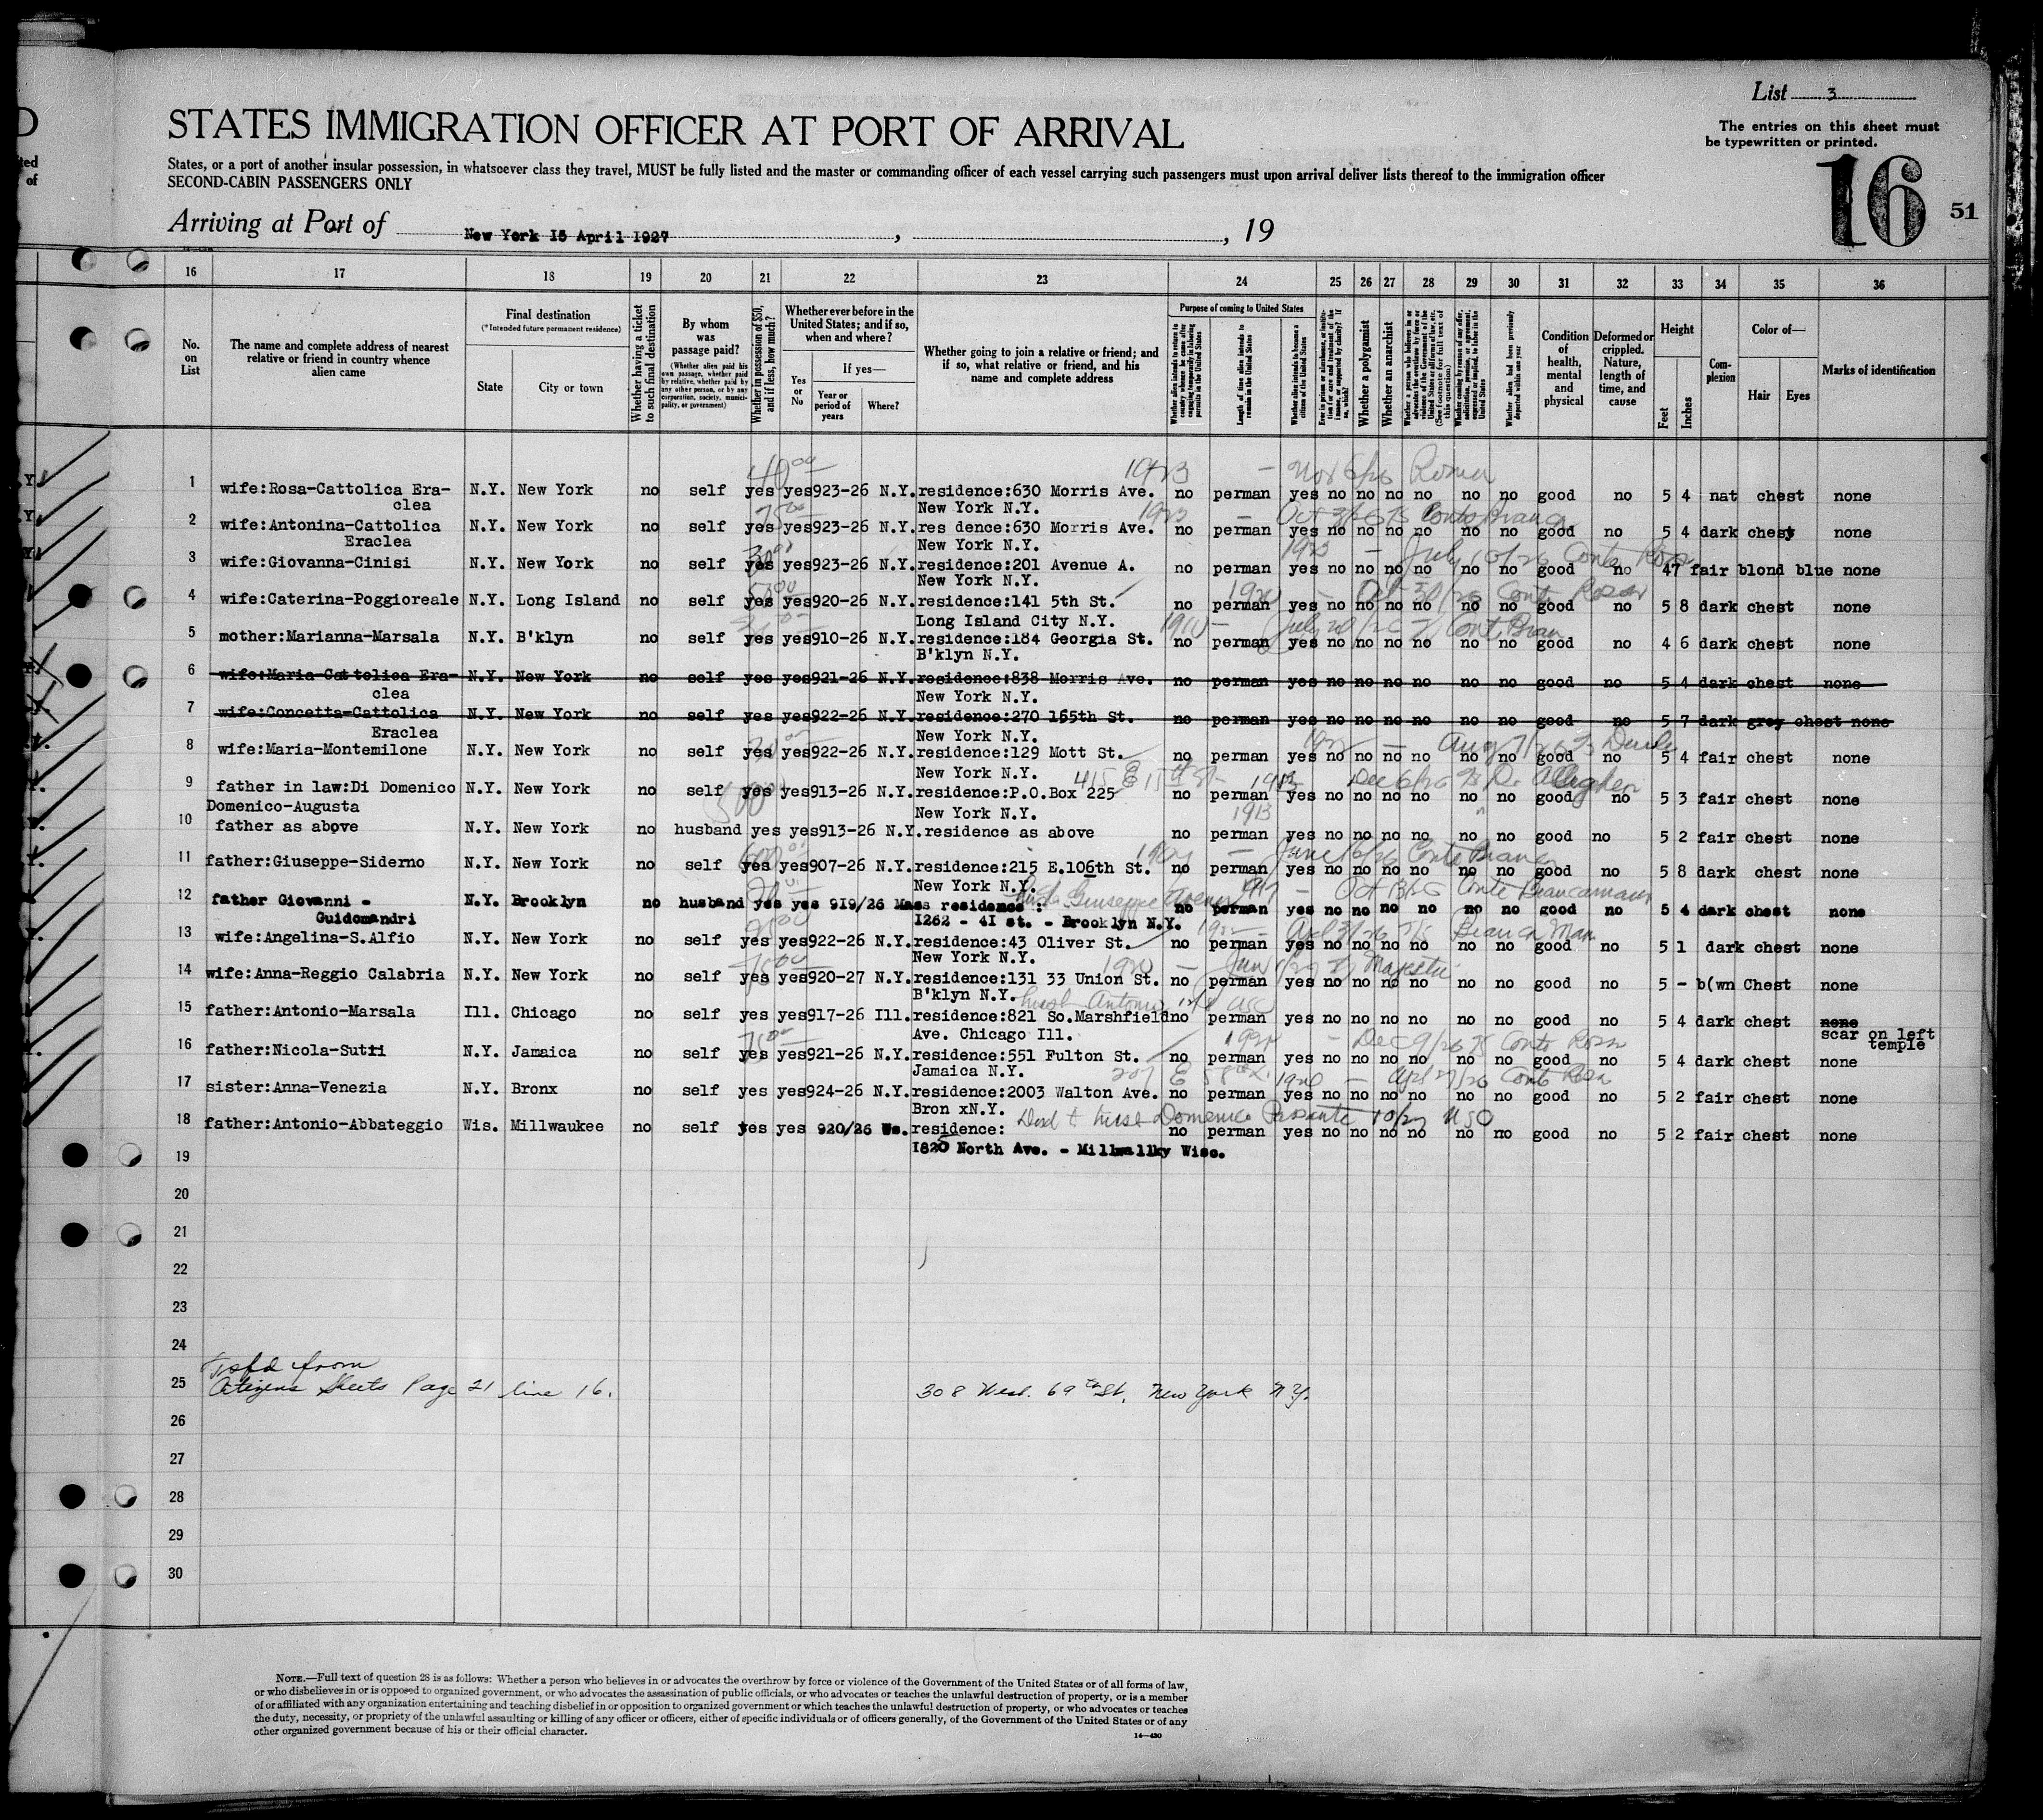 List 3
The entries on this sheet must
be typewritten or printed.
STATES IMMIGRATION OFFICER AT PORT OF ARRIVAL
States, or a port of another insular possession, in whatsoever class they travel, MUST be fully listed and the master or commanding officer of each vessel carrying such passengers must upon arrival deliver lists thereof to the immigration officer
SECOND-CABIN PASSENGERS ONLY
16
51
Arriving at Port of New York 15 April 1927, , 19
16 17 18 19 20 21 22 23 24 25 26 27 28 29 30 31 32 33 34 35 36
No. on List
The name and complete address of nearest relative or friend in country whence alien came
Final destination
(*Intended future permanent residence)
State
City or town
Whether having a ticket to such final destination
By whom was passage paid?
(Whether alien paid his own passage, whether paid by relative, whether paid by any other person, or by any corporation, society, municipality, or government)
Whether in possession of $50, and if less, how much?
Whether ever before in the United States; and if so, when and where?
Yes or No
If yes—
Year or period of years
Where?
Whether going to join a relative or friend; and if so, what relative or friend, and his name and complete address
Purpose of coming to United States
Length of time alien intends to remain in the United States
Whether alien intends to become a citizen of the United States
Whether a polygamist
Whether an anarchist
Whether alien had been previously deported within one year
Condition of health, mental and physical
Deformed or crippled. Nature, length of time, and cause
Height
Feet
Inches
Complexion
Color of—
Hair
Eyes
Marks of identification
40 00 1923 - Nov 6/26 Roma
1 wife:Rosa-Cattolica Era- N.Y. New York no self yes yes923-26 N.Y. residence:630 Morris Ave. no perman yes no no no no no no good no 5 4 nat chest none
clea New York N.Y.
2 wife:Antonina-Cattolica N.Y. New York no self yes yes923-26 N.Y. res dence:630 Morris Ave. no perman yes no no no no no no good no 5 4 dark chesy none
Eraclea New York N.Y.
3 wife:Giovanna-Cinisi N.Y. New York no self yes yes923-26 N.Y. residence:201 Avenue A. no perman yes no no no no no no good no 47 fair blond blue none
New York N.Y.
4 wife:Caterina-Poggioreale N.Y. Long Island no self yes yes920-26 N.Y. residence:141 5th St. no perman yes no no no no no no good no 5 8 dark chest none
Long Island City N.Y.
5 mother:Marianna-Marsala N.Y. B'klyn no self yes yes910-26 N.Y. residence:184 Georgia St. no perman yes no no no no no no good no 4 6 dark chest none
B'klyn N.Y.
6 wife:Maria-Cattolica Era- N.Y. New York no self yes yes921-26 N.Y. residence:838 Morris Ave. no perman yes no no no no no no good no 5 4 dark chest none
clea New York N.Y.
7 wife:Concetta-Cattolica N.Y. New York no self yes yes922-26 N.Y. residence:270 155th St. no perman yes no no no no no no good no 5 7 dark grey chest none
Eraclea New York N.Y.
8 wife:Maria-Montemilone N.Y. New York no self yes yes922-26 N.Y. residence:129 Mott St. no perman yes no no no no no no good no 5 4 fair chest none
New York N.Y. 415 E 15th St
9 father in law:Di Domenico N.Y. New York no self yes yes913-26 N.Y. residence:P.O.Box 225 no perman yes no no no no no no good no 5 3 fair chest none
Domenico-Augusta New York N.Y. 1913
10 father as above N.Y. New York no husband yes yes913-26 N.Y. residence as above no perman yes no no no no no no good no 5 2 fair chest none
11 father:Giuseppe-Siderno N.Y. New York no self yes yes907-26 N.Y. residence:215 E.106th St. no perman yes no no no no no no good no 5 8 dark chest none
New York N.Y.
12 father Giovanni - N.Y. Brooklyn no husband yes yes 919/26 Mass residence : no perman yes no no no no no no good no 5 4 dark chest none
Guidomandri 1262 - 41 st. - Brooklyn N.Y.
13 wife:Angelina-S.Alfio N.Y. New York no self yes yes922-26 N.Y. residence:43 Oliver St. no perman yes no no no no no no good no 5 1 dark chest none
New York N.Y.
14 wife:Anna-Reggio Calabria N.Y. New York no self yes yes920-27 N.Y. residence:131 33 Union St. no perman yes no no no no no no good no 5 - b(wn Chest none
B'klyn N.Y.
15 father:Antonio-Marsala Ill. Chicago no self yes yes917-26 Ill. residence:821 So.Marshfield no perman yes no no no no no no good no 5 4 dark chest none
Ave. Chicago Ill. scar on left temple
16 father:Nicola-Sutri N.Y. Jamaica no self yes yes921-26 N.Y. residence:551 Fulton St. no perman yes no no no no no no good no 5 4 dark chest none
Jamaica N.Y.
17 sister:Anna-Venezia N.Y. Bronx no self yes yes924-26 N.Y. residence:2003 Walton Ave. no perman yes no no no no no no good no 5 2 fair chest none
Bron xN.Y.
18 father:Antonio-Abbateggio Wis. Millwaukee no self yes yes 920/26 Ws. residence: no perman yes no no no no no no good no 5 2 fair chest none
19 1820 North Ave. - Millwallky Wisc.
20
21
22
23
24
Tsfd from
25 Citizens Sheets Page 21 line 16. 308 West. 69th St. New York N.Y.
26
27
28
29
30
NOTE.—Full text of question 28 is as follows: Whether a person who believes in or advocates the overthrow by force or violence of the Government of the United States or of all forms of law,
or who disbelieves in or is opposed to organized government, or who advocates the assassination of public officials, or who advocates or teaches the unlawful destruction of property, or is a member
of or affiliated with any organization entertaining and teaching disbelief in or opposition to organized government or which teaches the unlawful destruction of property, or who advocates or teaches
the duty, necessity, or propriety of the unlawful assaulting or killing of any officer or officers, either of specific individuals or of officers generally, of the Government of the United States or of any
other organized government because of his or their official character.
14—430